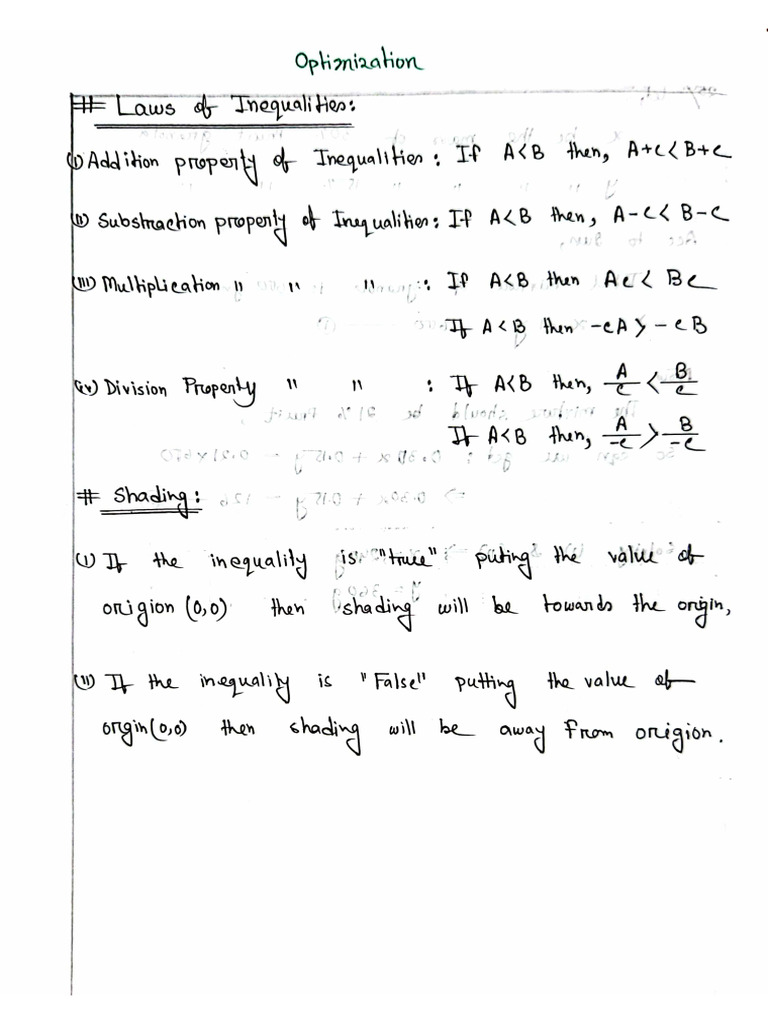 Optimization
# Laws of Inequalities:
(i) Addition property of Inequalities: If A<B then, A+c<B+c
(ii) Substraction property of Inequalities: If A<B then, A-c< B-c
(iii) Multiplication " " " : If A<B then Ac < Bc
If A<B then -cA > -cB
(iv) Division Property " " : If A<B then, A/c < B/c
If A<B then, A/-c > B/-c
# Shading:
(i) If the inequality is "true" puting the value of
origion (0,0) then shading will be towards the origin,
(ii) If the inequality is "False" putting the value of
orgin(0,0) then shading will be away from origion.